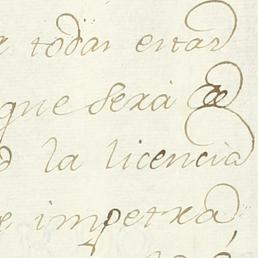 todas estas
que sexà de
la licencia
impetxa